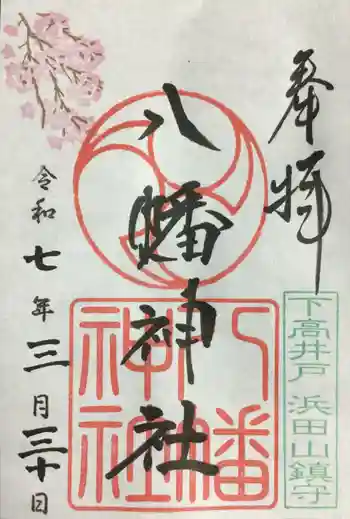 奉拝
下高井戸 浜田山鎮守
八幡神社
八幡
神社
令和七年三月三十日